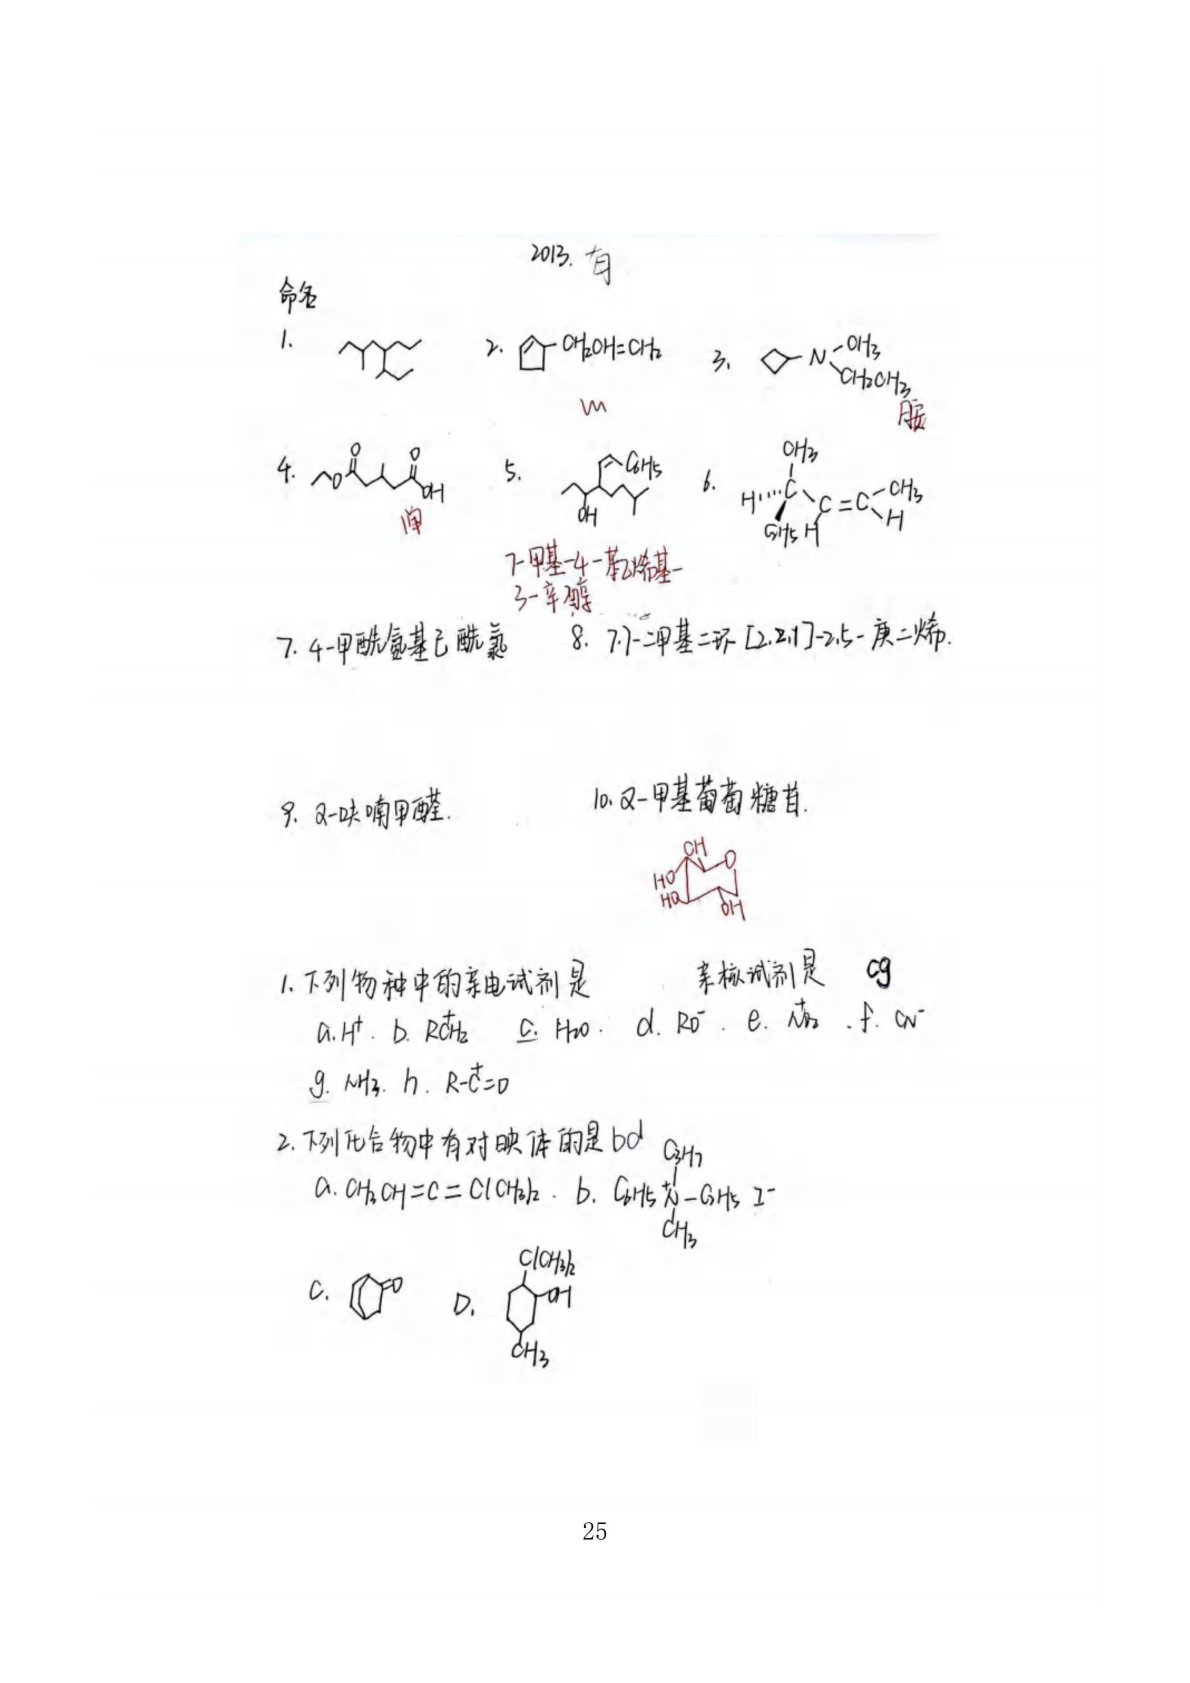 2013. 有
命名
1. 2. CH2CH=CH2 3. N CH3 CH2CH3
胺
4. O O O OH 5. C6H5 OH 6. CH3 H C C6H5 H C=C CH3 H
7-甲基-4-苯乙烯基-
3-辛醇
7. 4-甲酰氨基己酰氯 8. 7.7-二甲基二环[2.2.1]-2,5-庚二烯.
9. 2-呋喃甲醛. 10. α-甲基葡萄糖苷.
OH O
HO
HO
OH
1. 下列物种中的亲电试剂是 亲核试剂是 cg
a. H+. b. RCH2+ c. H2O. d. RO-. e. NO2+. f. CN-
g. NH3. h. R-C+=O
2. 下列化合物中有对映体的是bd
a. CH3CH=C=C(CH3)2. b. C6H5 N+ -C2H5 I- C3H7 CH3
C. O D. C(CH3)2 OH CH3
25